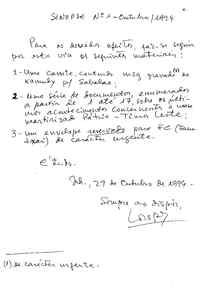 SINOPSE Nº 2 - Outubro/1994
Para os devidos efeitos, faz-se seguir
por esta via os seguintes materiais:
1 - Uma Carta, contendo msg grande
p/ Sabalae;
2 - Uma série de documentos, enumerados
a partir de 1 até 17, sobre os últi-
mos acontecimentos concernente a nossa
martirizada Pátria - Timor Leste;
3 - um envelope reservado para
de carácter urgente.
29 de Outubro de 1994.
Sempre ao dispôr,
(1) de carácter urgente.